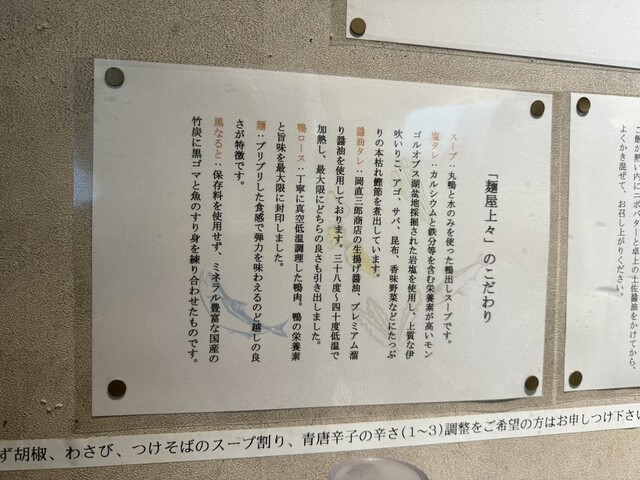 「麺屋上々」のこだわり
スープ：丸鴨と水のみを使った鴨出しスープです。
塩タレ：カルシウムと鉄分等を含む栄養素が高いモン
ゴルオブス湖盆地採掘された岩塩を使用し、上質な伊
吹いりこ、アゴ、サバ、昆布、香味野菜などにたっぷ
りの本枯れ鰹節を煮出しています。
醤油タレ：岡直三郎商店の生揚げ醤油、プレミアム溜
り醤油を使用しております。三十八度〜四十度低温で
加熱し、最大限にどちらの良さも引き出しました。
鴨ロース：丁寧に真空低温調理した鴨肉。鴨の栄養素
と旨味を最大限に封印しました。
麺：プリプリした食感で弾力を味わえるのど越しの良
さが特徴です。
黒なると：保存料を使用せず、ミネラル豊富な国産の
竹炭に黒ゴマと魚のすり身を練り合わせたものです。
卓上の土佐醤油をかけてから、
よくかき混ぜて、お召し上がりください。
ず胡椒、わさび、つけそばのスープ割り、青唐辛子の辛さ(1〜3)調整をご希望の方はお申しつけ下さい